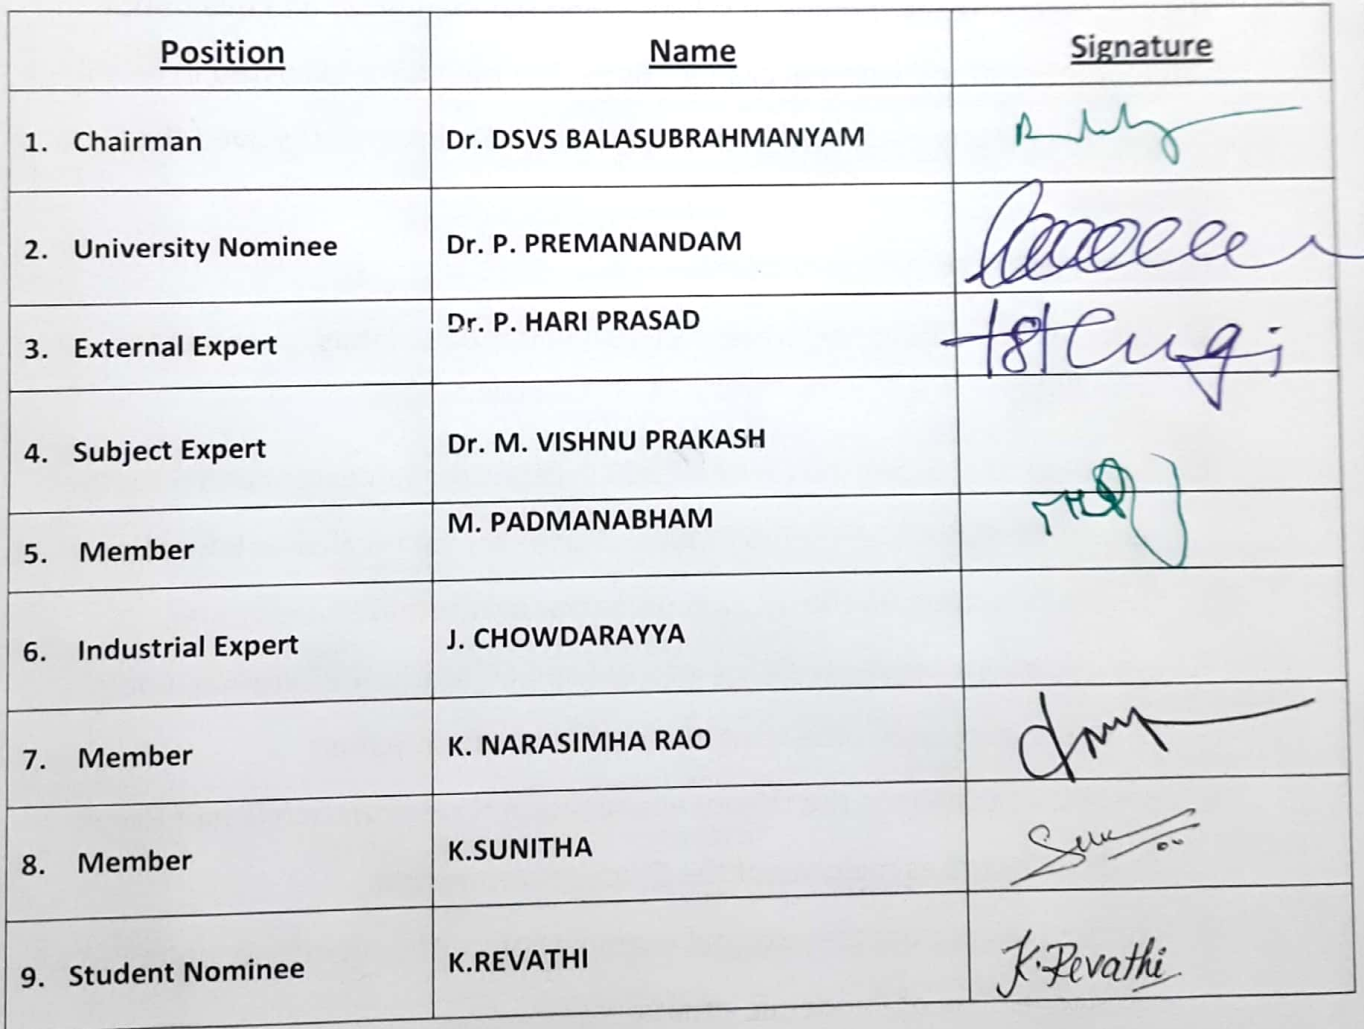 Position Name Signature
1. Chairman Dr. DSVS BALASUBRAHMANYAM
2. University Nominee Dr. P. PREMANANDAM
3. External Expert Dr. P. HARI PRASAD
4. Subject Expert Dr. M. VISHNU PRAKASH
5. Member M. PADMANABHAM
6. Industrial Expert J. CHOWDARAYYA
7. Member K. NARASIMHA RAO
8. Member K.SUNITHA
9. Student Nominee K.REVATHI K.Revathi